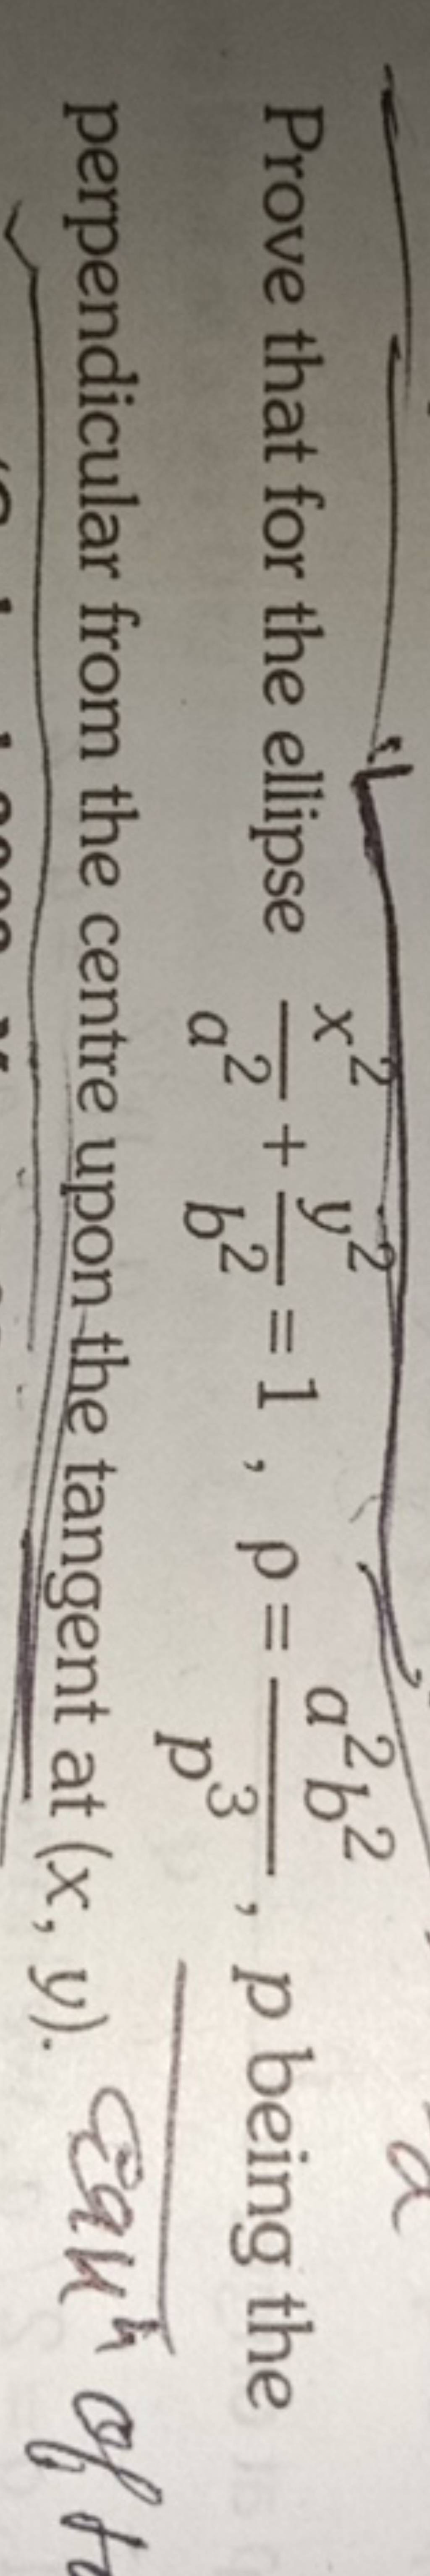 Prove that for the ellipse x²/a² + y²/b² = 1 , ρ = a²b²/p³ , p being the
perpendicular from the centre upon the tangent at (x, y). eqⁿ of